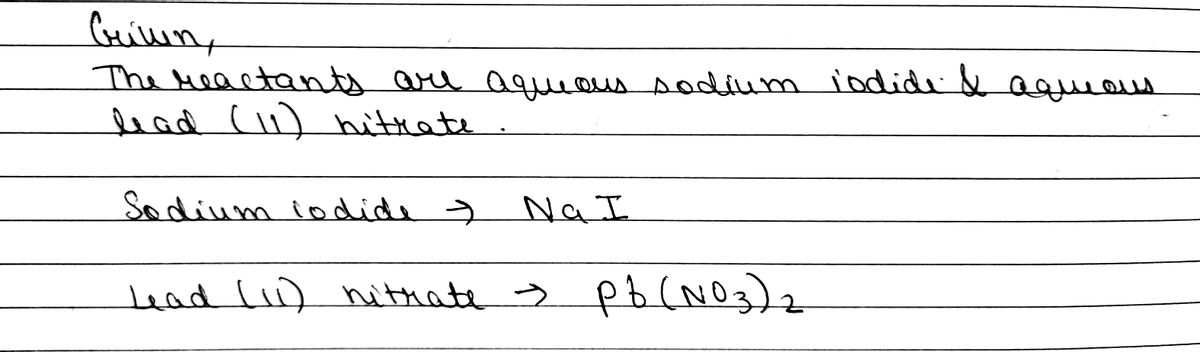 Given,
The reactants are aqueous sodium iodide & aqueous
lead (11) nitrate.
Sodium iodide → NaI
Lead (11) nitrate → Pb(NO3)2